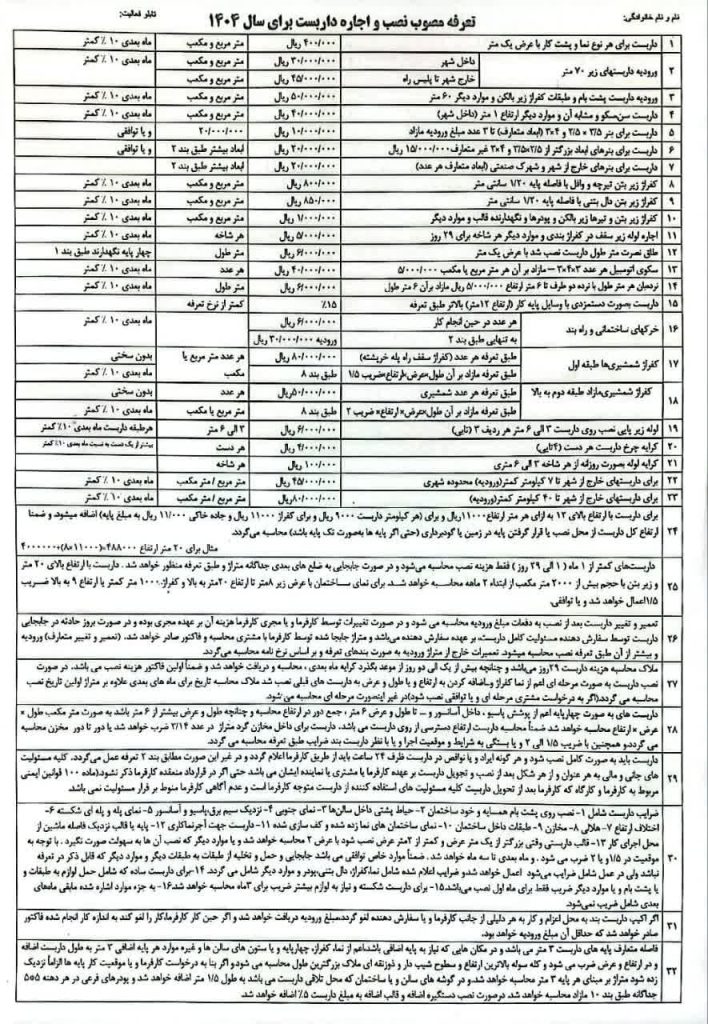 نام و نام خانوادگی:
تعرفه مصوب نصب و اجاره داربست برای سال ۱۴۰۴
تابلو فعالیت:
۱ داربست برای هر نوع نما و پشت کار با عرض یک متر ۴۰۰/۰۰۰ ریال متر مربع و مکعب ماه بعدی ۱۰ ٪ کمتر
۲ ورودیه داربستهای زیر ۷۰ متر داخل شهر ۳۰/۰۰۰/۰۰۰ ریال متر مربع و مکعب ماه بعدی ۱۰ ٪ کمتر
خارج شهر تا پلیس راه ۴۵/۰۰۰/۰۰۰ ریال متر مربع و مکعب
۳ ورودیه داربست پشت بام و طبقات کفراژ زیر بالکن و موارد دیگر ۶۰ متر ۵۰/۰۰۰/۰۰۰ ریال متر مربع و مکعب ماه بعدی ۱۰ ٪ کمتر
۴ داربست سن‌سکو و مشابه آن و موارد دیگر ارتفاع ۱ متر (داخل شهر) ۴۰/۰۰۰/۰۰۰ ریال متر مربع و مکعب ماه بعدی ۱۰ ٪ کمتر
۵ داربست برای بنر ۳/۵ × ۲/۵ و ۴×۳ (ابعاد متعارف) تا ۳ عدد مبلغ ورودیه مازاد ۱۰/۰۰۰/۰۰۰ ریال ۲۰/۰۰۰/۰۰۰ و یا توافقی
۶ داربست برای بنرهای ابعاد بزرگتر از ۲/۵×۳/۵ و ۴×۳ غیر متعارف ۱۵/۰۰۰/۰۰۰ ریال ۲۰/۰۰۰/۰۰۰ ریال ابعاد بیشتر طبق بند ۲ و یا توافقی
۷ داربست برای بنرهای خارج از شهر و شهرک صنعتی (ابعاد متعارف هر عدد) ۲۰/۰۰۰/۰۰۰ ریال ابعاد بیشتر طبق بند ۲
۸ کفراژ زیر بتن تیرچه و وافل با فاصله پایه ۱/۲۰ سانتی متر ۸۰۰/۰۰۰ ریال متر مربع و مکعب ماه بعدی ۱۰ ٪ کمتر
۹ کفراژ زیر بتن دال بتنی با فاصله پایه ۱/۲۰ سانتی متر ۸۵۰/۰۰۰ ریال متر مربع و مکعب ماه بعدی ۱۰ ٪ کمتر
۱۰ کفراژ زیر بتن و تیرها زیر بالکن و پودرها و نگهدارنده قالب و موارد دیگر ۱/۰۰۰/۰۰۰ ریال متر مربع و مکعب ماه بعدی ۱۰ ٪ کمتر
۱۱ اجاره لوله زیر سقف در کفراژ بندی و موارد دیگر هر شاخه برای ۲۹ روز ۵/۰۰۰/۰۰۰ ریال هر شاخه ماه بعدی ۱۰ ٪ کمتر
۱۲ طاق نصرت متر طول داربست نصب شد با عرض یک متر ۶/۰۰۰/۰۰۰ ریال متر طول چهار پایه نگهدارند طبق بند ۱
۱۳ سکوی اتومبیل هر عدد ۳×۴×۳ – مازاد بر آن هر متر مربع یا مکعب ۵/۰۰۰/۰۰۰ ۴۰/۰۰۰/۰۰۰ ریال هر عدد ماه بعدی ۱۰ ٪ کمتر
۱۴ نردبان هر متر طول با نرده دو طرف تا ۶ متر ارتفاع ۵/۰۰۰/۰۰۰ ریال مازاد بر آن ۶ متر طول ۶/۰۰۰/۰۰۰ ریال متر طول ماه بعدی ۱۰ ٪ کمتر
۱۵ داربست بصورت دستمزدی با وسایل پایه کار (ارتفاع ۱۲متر) بالاتر طبق تعرفه ۱۵٪ کمتر از نرخ تعرفه
۱۶ خرکهای ساختمانی و راه بند هر عدد در حین انجام کار ۶/۰۰۰/۰۰۰ ریال ماه بعدی ۱۰ ٪ کمتر
به تنهایی طبق بند ۲ ورودیه ۳۰/۰۰۰/۰۰۰ ریال
۱۷ کفراژ شمشیری‌ها طبقه اول طبق تعرفه هر عدد (کفراژ سقف راه پله خرپشته) ۸۰/۰۰۰/۰۰۰ ریال هر عدد متر مربع یا بدون سختی
طبق تعرفه مازاد بر آن طول×عرض×ارتفاع×ضریب ۱/۵ طبق بند ۸ مکعب ماه بعدی ۱۰ ٪ کمتر
۱۸ کفراژ شمشیری‌مازاد طبقه دوم به بالا طبق تعرفه هر عدد شمشیری ۵۰/۰۰۰/۰۰۰ریال هر عدد بدون سختی
طبق تعرفه مازاد بر آن طول×عرض×ارتفاع× ضریب ۲ طبق بند ۸ متر مربع یا مکعب ماه بعدی ۱۰ ٪ کمتر
۱۹ لوله زیر پایی نصب روی داربست ۳ الی ۶ متر هر ردیف ۳ (تایی) ۶/۰۰۰/۰۰۰ ریال ۳ الی ۶ متر هرطبقه داربست ماه بعدی ۱۰٪ کمتر
۲۰ کرایه چرخ داربست هر دست (۴تایی) ۴/۰۰۰/۰۰۰ ریال هر دست بیشتر از یک دست به نسبت ماه بعدی ۱۰٪ کمتر
۲۱ کرایه لوله بصورت روزانه از هر شاخه ۳ الی ۶ متری ۱۰۰/۰۰۰ ریال هر شاخه
۲۲ برای داربستهای خارج از شهر تا ۷ کیلومتر کمتر(ورودیه) محدوده شهری ۴۵/۰۰۰/۰۰۰ ریال متر مربع / متر مکعب ماه بعدی ۱۰ ٪ کمتر
۲۳ برای داربستهای خارج از شهر تا ۴۰ کیلومتر کمتر(ورودیه) ۸۰/۰۰۰/۰۰۰ریال متر مربع / متر مکعب ماه بعدی ۱۰ ٪ کمتر
۲۴ برای داربست با ارتفاع بالای ۱۲ به ازای هر متر ارتفاع۱۱۰۰۰ریال و برای (هر کیلومتر داربست ۹۰۰۰ ریال و برای کفراژ ۱۱۰۰۰ ریال و جاده خاکی ۱۱/۰۰۰ ریال به مبلغ پایه) اضافه میشود. و ضمنا
ارتفاع کل داربست از محل نصب یا قرار گرفتن پایه در زمین یا گودبرداری (حتی اگر پایه ها بصورت تک پایه باشد) محاسبه می‌گردد.
مثال برای ۲۰ متر ارتفاع ۴۸۸۰۰۰=(۱۱۰۰۰×۸)+۴۰۰۰۰۰
۲۵ داربست‌های کمتر از ۱ ماه (۱ الی ۲۹ روز ) فقط هزینه نصب محاسبه می‌شود و در صورت جابجایی به ضلع های بعدی جداگانه متراژ و طبق تعرفه منظور خواهد شد. داربست با ارتفاع بالای ۲۰ متر
و زیر بتن با حجم بیش از ۲۰۰۰ متر مکعب از ابتداء ۲ ماهه محاسبه خواهد شد. برای نمای ساختمان با عرض زیر ۸متر تا ارتفاع ۲۰متر به بالا و کفراژ۱۰۰۰ متر کمتر با ارتفاع ۹ به بالا ضریب
۱/۵اعمال خواهد شد و یا توافقی.
۲۶ تعمیر و تغییر داربست بعد از نصب به دفعات مبلغ ورودیه محاسبه می شود و در صورت تغییرات توسط کارفرما و یا مجری کارفرما هزینه آن بر عهده مجری بوده و در صورت بروز حادثه در جابجایی
داربست توسط سفارش دهنده مسئولیت کامل داربست، بر عهده سفارش دهنده می‌باشد و متراژ جابجا شده توسط کارفرما با مشتری محاسبه و فاکتور صادر خواهد شد. (تعمیر و تغییر متعارف) ورودیه
و بیشتر از آن طبق تعرفه نصب محاسبه میشود. تعمیرات خارج از متراژ ورودیه به صورت بندهای تعرفه و بر اساس نرخ نامه محاسبه می گردد.
۲۷ ملاک محاسبه هزینه داربست ۲۹روز می‌باشد و چنانچه بیش از یک الی دو روز از موعد بگذرد کرایه ماه بعدی ، محاسبه و دریافت خواهد شد و ضمناً اولین فاکتور هزینه نصب می باشد. در صورت
نصب داربست به صورت مرحله ای اعم از نما کفراژ و...اضافه کردن به ارتفاع و یا طول و عرض به داربست های قبلی نصب شد ملاک محاسبه تاریخ برای ماه های بعدی علاوه بر متراژ اولین تاریخ نصب
محاسبه می گردد.(اگر به درخواست مشتری مرحله ای و یا توافقی نصب شود)در غیر اینصورت مرحله ای محاسبه می شود.
۲۸ داربست های به صورت چهارپایه اعم از پوشش پاسیو ، داخل آسانسور و ... تا طول و عرض ۶ متر ، جمع دور در ارتفاع محاسبه و چنانچه طول و عرض بیشتر از ۶ متر باشد به صورت متر مکعب طول ×
عرض × ارتفاع محاسبه خواهد شد ضمناً محاسبه داربست ارتفاع دسترسی از روی داربست می باشد. داربست برای داخل مخازن گرد متراژ در عدد ۲/۱۴ ضرب خواهد شد یا دور تا دور مخزن محاسبه
می گرددو همچنین با ضریب ۱/۵ الی ۲ و یا بستگی به شرایط و موقعیت اجرا و یا با نظر داربست بند ضرایب طبق تعرفه محاسبه می گردد.
۲۹ داربست باید به صورت کامل نصب شود و هر گونه ایراد و یا نواقص در داربست ظرف ۲۴ ساعت باید از طریق کارفرما اعلام گردد و در غیر این صورت مطابق بند ۲ تعرفه عمل می‌گردد. کلیه مسئولیت
های جانی و مالی به هر عنوان و از هر شکل بعد از نصب و تحویل داربست بر عهده کارفرما یا مشتری یا نماینده ایشان می باشد حتی اگر در قرارداد منعقده کارفرما ذکر نشود(ماده ۱۰۰ قوانین ایمنی
مربوط به کارفرما و کارگاه که کارفرما بعد از تحویل داربست کلیه مسئولیت های استفاده کننده از داربست متوجه کارفرما است و عدم آگاهی کارفرما منوط بر فرار مسئولیت نمی باشد.
۳۰ ضرایب داربست شامل ۱- نصب روی پشت بام همسایه و خود ساختمان ۲- حیاط پشتی داخل سالن‌ها ۳- نمای جنوبی ۴- نزدیک سیم برق،پاسیو و آسانسور ۵- نمای پله و پله ای شکسته ۶-
اختلاف ارتفاع ۷- هلالی ۸- مخازن ۹- طبقات داخل ساختمان ۱۰- نمای ساختمان های نما زده شده و کف سازی شده ۱۱- داربست جهت آجرنماکاری ۱۲- پایه یا قالب نزدیک فاصله ماشین از
محل اجرای کار ۱۳- قالب داربستی وقتی بزرگتر از یک متر عرض و کمتر از ۲متر عرض نصب شود با عرض ۲ محاسبه خواهد شد و یا موارد دیگر که نصب آن ها به سهولت صورت نگیرد . با توجه به
موقعیت در ۱/۵ و یا ۲ ضرب می شود . و ماه بعدی تا سه ماه خواهد شد. ضمناً موارد خاص توافقی می باشد جابجایی و حمل و تخلیه از طبقات به طبقات دیگر و موارد دیگر که قابل ذکر در تعرفه
نباشد ولی در عمل شامل ضرایب می‌شود اعمال خواهد شدو ضرایب اعلام شده شامل نما،کفراژ، دال بتنی،پودر و موارد دیگر شامل می گردد. ۱۴-برای داربست ساده که شامل حمل لوازم به طبقات و
یا پشت بام و یا موارد دیگر ضریب فقط برای ماه اول نصب می‌باشد۱۵- برای داربست شکسته و نیاز به لوازم بیشتر ضریب برای ۳ماه محاسبه خواهد شد.۱۶- به جزء موارد اشاره شده مابقی ماه‌های
بعدی شامل ضریب نمی‌شود.
۳۱ اگر اکیپ داربست بند به محل اعزام و کار به هر دلیلی از جانب کارفرما و یا سفارش دهنده لغو گردد،مبلغ ورودیه دریافت خواهد شد و اگر حین کار کارفرما،کار را لغو کند به اندازه کار انجام شده فاکتور
صادر خواهد شد که حداقل آن مبلغ ورودیه خواهد بود.
۳۲ فاصله متعارف پایه های داربست ۳ متر می باشد و در مکان هایی که نیاز به پایه اضافی باشد،اعم از نما، کفراژ، چهارپایه و یا ستون های سالن ها و غیره موارد هر پایه اضافی ۳ متر به طول داربست اضافه
و در ارتفاع و عرض ضرب می شود و کله سوله بالاترین ارتفاع و سطوح شیب دار و ذوزنقه ای ملاک بزرگترین طول محاسبه می شود و اگر بنا به درخواست کارفرما و یا موقعیت کار پایه ها الزاماً نزدیک
زده شود متراژ بر مبنای هر پایه ۳ متر محاسبه خواهد شد.و در گوشه های سالن و یا ساختمان که محل تلاقی داربست می باشد به طول ۱/۵ متر اضافه خواهد شد و پودرهای فرعی در هر دهنه ۵*۵
جداگانه طبق بند ۱۰ مازاد محاسبه خواهد شد. درصورت نصب دستگیره اضافه و قالب اضافه به مبلغ داربست ۵٪ اضافه خواهد شد.